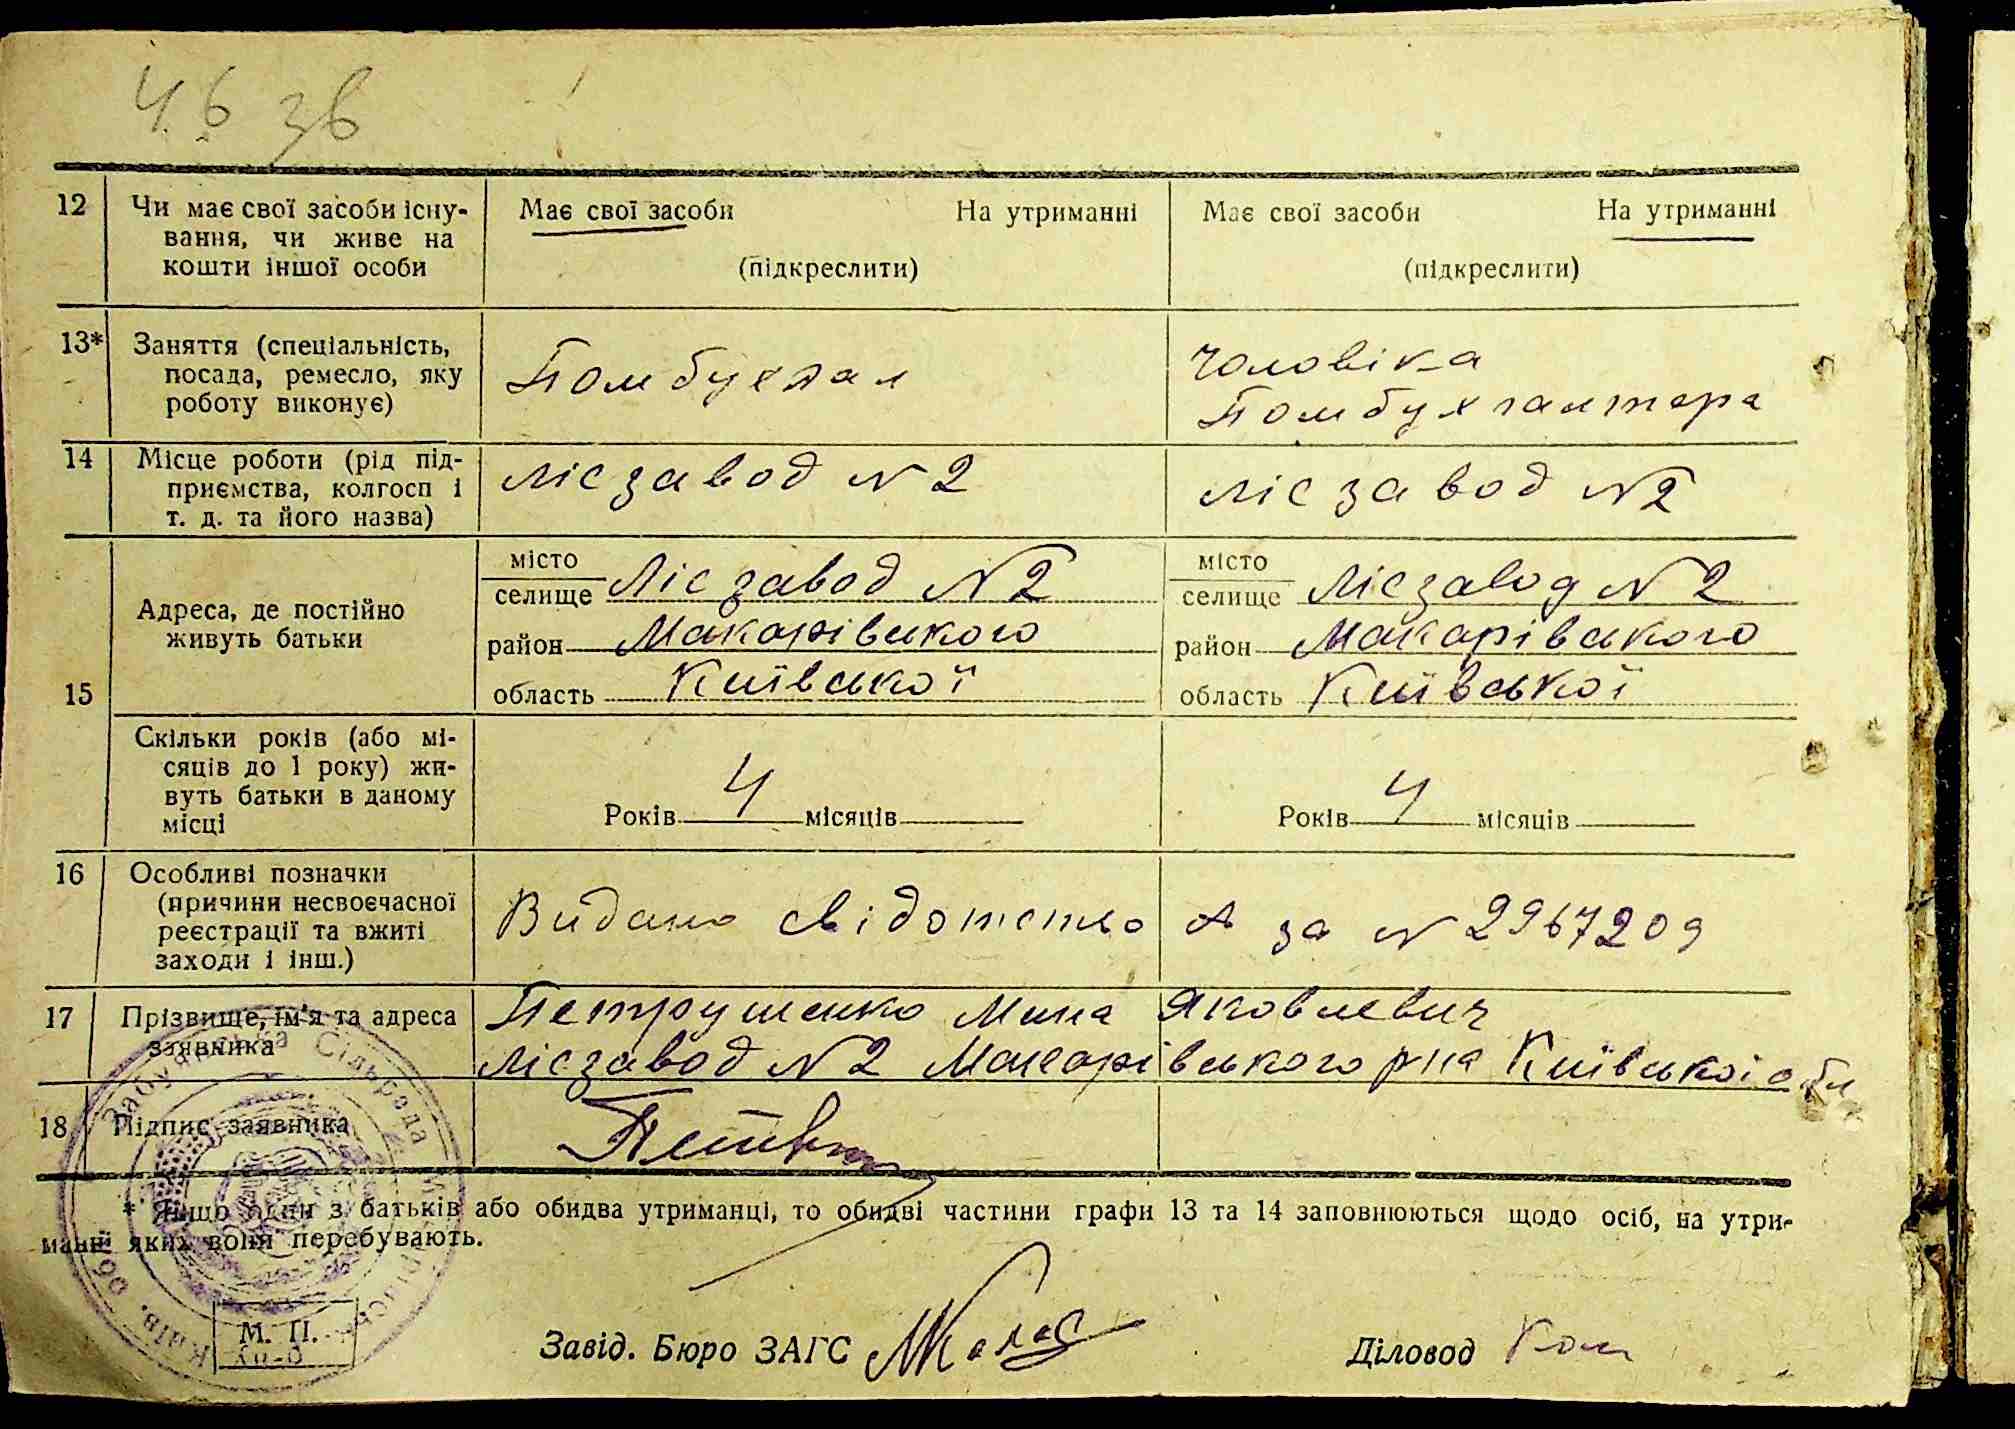 4. 6 зв
12 Чи має свої засоби існу- Має свої засоби На утриманні Має свої засоби На утриманні
вання, чи живе на
кошти іншої особи (підкреслити) (підкреслити)
13* Заняття (спеціальність, чоловіка
посада, ремесло, яку Помбухгал Помбухгалтера
роботу виконує)
14 Місце роботи (рід під- Лісзавод N 2 Лісзавод N2
приємства, колгосп і
т. д. та його назва)
15 Адреса, де постійно
живуть батьки
місто
селище Лісзавод N2
район Макарівського
область Київської
місто
селище Лісзавод N 2
район Макарівського
область Київської
Скільки років (або мі-
сяців до 1 року) жи-
вуть батьки в даному
місці
Років 4 місяців Років 4 місяців
16 Особливі позначки
(причини несвоєчасної Видано свідотство А за N 2967209
реєстрації та вжиті
заходи і інш.)
17 Прізвище, ім'я та адреса Петрушенко Мина Яковлевич
заявника Лісзавод N2 Макарівського рна Київської обл
18 Підпис заявника
* Якщо один з батьків або обидва утриманці, то обидві частини графи 13 та 14 заповнюються щодо осіб, на утри-
манні яких вони перебувають.
Забуянська Сільрада
Київ. обл.
М. П.
Завід. Бюро ЗАГС Діловод